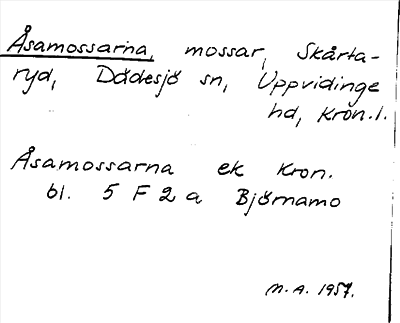 Åsamossarna, mossar, Skårta-
ryd, Dädesjö sn, Uppvidinge
hd, Kron.l.
Åsamossarna ek Kron.
bl. 5 F 2 a Björnamo
M.A. 1957.